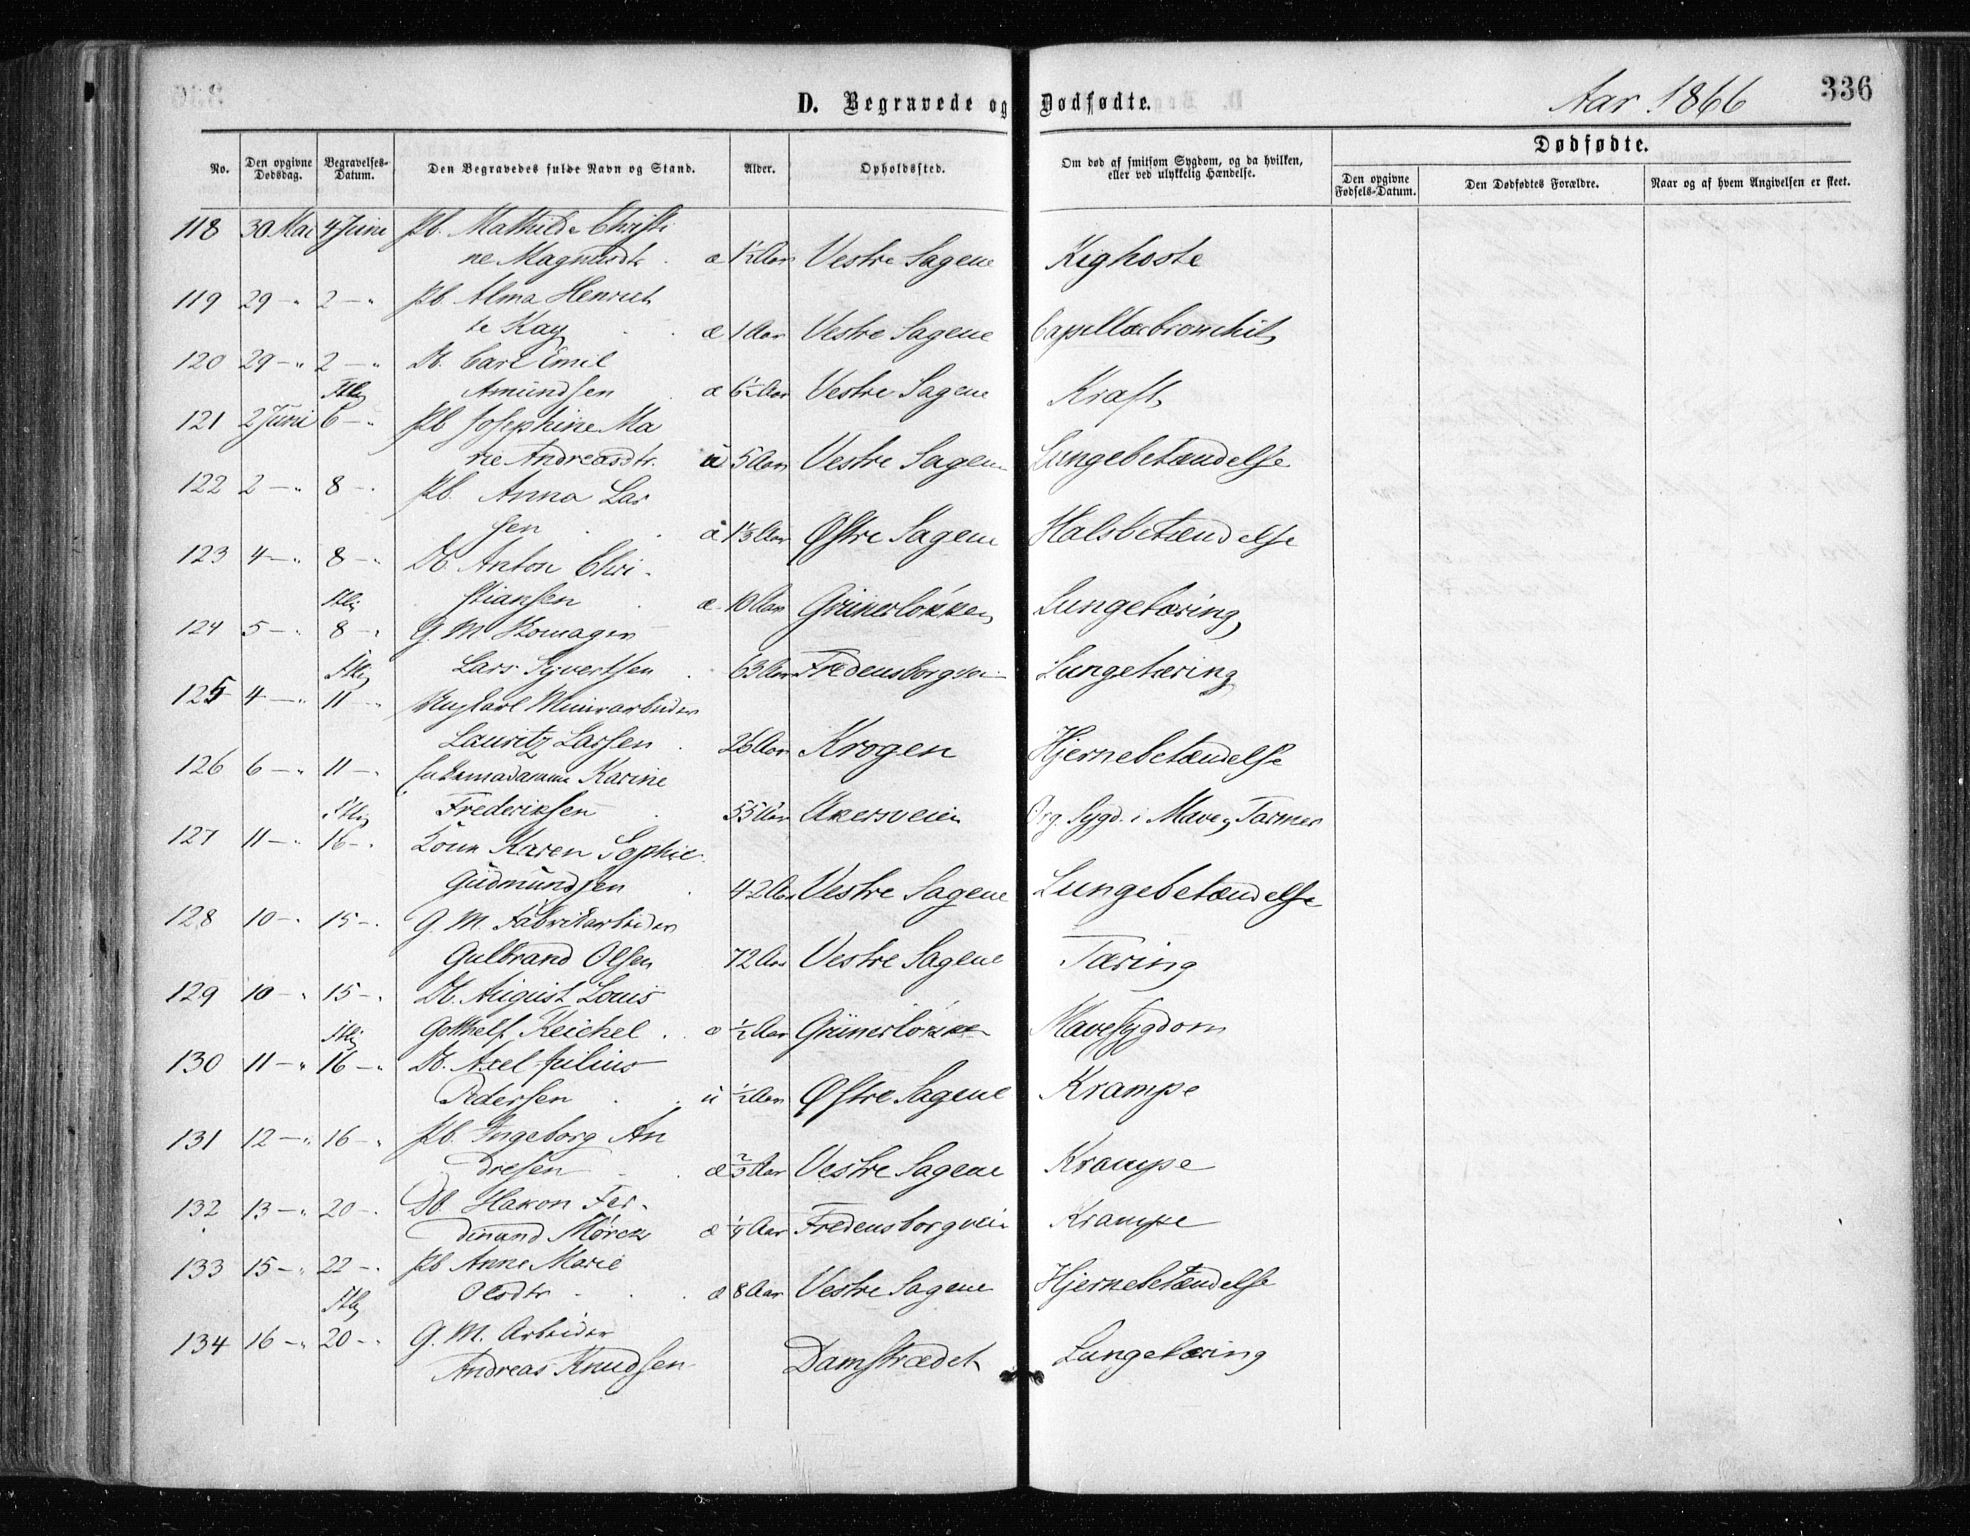 336
D. Begravede og Dødfødte.
Aar 1866
No.
Den opgivne Dødsdag.
Begravelses-Datum.
Den Begravedes fulde Navn og Stand.
Alder.
Opholdssted.
Om død af smitsom Sygdom, og da hvilken, eller ved ulykkelig Hændelse.
Dødfødte.
Den opgivne Fødsels-Datum.
Den Dødfødtes Forældre.
Naar og af hvem Angivelsen er skeet.
118 30 Mai 4 Juni Pb. Mathilde Christi
ne Magnusdtr. æ 1½ Aar Vestre Sagene Kighoste
119 29 – „ 2 – „ Pb. Alma Henriet
te Kay æ 1 Aar Vestre Sagene Capellærbronchit
120 29 – „ 2 – „ Db. Carl Emil
Amundsen æ 6½ Aar Vestre Sagene Kraft
121 2 Juni 6 – „ Pb Josephine Ma
rie Andreasdtr. u 5 Aar Vestre Sagene Lungebetændelse
122 2 – „ 8 – „ Pb. Anna Lar
sen u 1⅓ Aar Østre Sagene Halsbetændelse
123 4 – „ 8 – „ Db. Anton Chri-
stiansen æ 10 Aar Grünerløkken Lungetæring
124 5 – „ 8 – „ G. M. Skomager
Lars Syvertsen 63 Aar Fredensborgvei Lungetæring
125 4 – „ 11 – „ Ungkarl Murarbeider
Lauritz Larsen 26 Aar Krogen Hjernebetændelse
126 6 – „ 11 – „ Karine
Frederiksen 55 Aar Akersveien Org. Sygd. i Mave og Tarmer
127 11 – „ 16 – „ Kone Karen Sophie
Gudmundsen 42 Aar Vestre Sagene Lungebetændelse
128 10 – „ 15 – „ G. M. Fabrikarbeider
Gulbrand Olsen 72 Aar Vestre Sagene Tæring
129 10 – „ 15 – „ Db. August Louis
Gotthelf Reichel æ ½ Aar Grünerløkken Mavesygdom
130 11 – „ 16 – „ Db. Axel Julius
Pedersen u ½ Aar Østre Sagene Krampe
131 12 – „ 16 – „ Pb. Ingeborg An
dresen æ ⅔ Aar Vestre Sagene Krampe
132 13 – „ 20 – „ Db. Hakon Fer-
dinand Mørck æ ¼ Aar Fredensborgveien Krampe
133 15 – „ 22 – „ Pb Anne Marie
Olsdtr æ 8 Aar Vestre Sagene Hjernebetændelse
134 16 – „ 20 – „ G. M. Arbeider
Andreas Knudsen Damstrædet Lungetæring